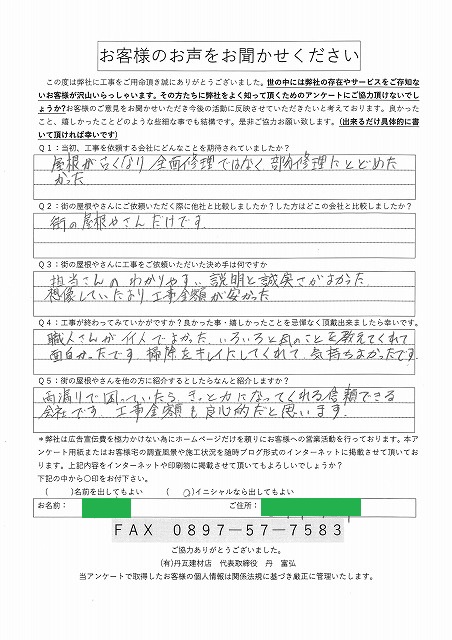 お客様のお声をお聞かせください
この度は弊社に工事をご用命頂き誠にありがとうございました。世の中には弊社の存在やサービスをご存知な
いお客様が沢山いらっしゃいます。その方たちに弊社をよく知って頂くためのアンケートにご協力頂けないでし
ょうか?お客様のご意見をお聞かせいただき今後の活動に反映させていただきたいと考えております。良かった
こと、嬉しかったことどのような些細な事でも結構です。是非ご協力お願い致します。(出来るだけ具体的に書
いて頂ければ幸いです)
Q1:当初、工事を依頼する会社にどんなことを期待されていましたか?
屋根が古くなり全面修理ではなく部分修理にとどめた
かった
Q2:街の屋根やさんにご依頼いただく際に他社と比較しましたか?した方はどこの会社と比較しましたか?
街の屋根やさんだけです。
Q3:街の屋根やさんに工事をご依頼いただいた決め手は何ですか
担当さんのわかりやすい説明と誠実さがよかった
想像していたより工事金額が安かった
Q4:工事が終わってみていかがですか?良かった事・嬉しかったことを忌憚なく頂戴出来ましたら幸いです。
職人さんが でよかった いろいろと のことを教えてくれて
面白かったです 掃除もキレイにしてくれて 気持ちよかったです
Q5:街の屋根やさんを他の方に紹介するとしたらなんと紹介しますか?
雨漏りで困っていたら きっと力になってくれる信頼できる
会社です 工事金額も良心的だと思います
*弊社は広告宣伝費を極力かけない為にホームページだけを頼りにお客様への営業活動を行っております。本ア
ンケート用紙またはお客様宅の調査風景や施工状況を随時ブログ形式のインターネットに掲載させて頂いてお
ります。上記内容をインターネットや印刷物に掲載させて頂いてもよろしいでしょうか?
下記の中から〇印をお付下さい。
( )名前を出してもよい ( 〇 )イニシャルなら出してもよい
お名前: ご住所:
FAX 0897-57-7583
ご協力ありがとうございました。
(有)丹瓦建材店 代表取締役 丹 富弘
当アンケートで取得したお客様の個人情報は関係法規に基づき厳正に管理いたします。